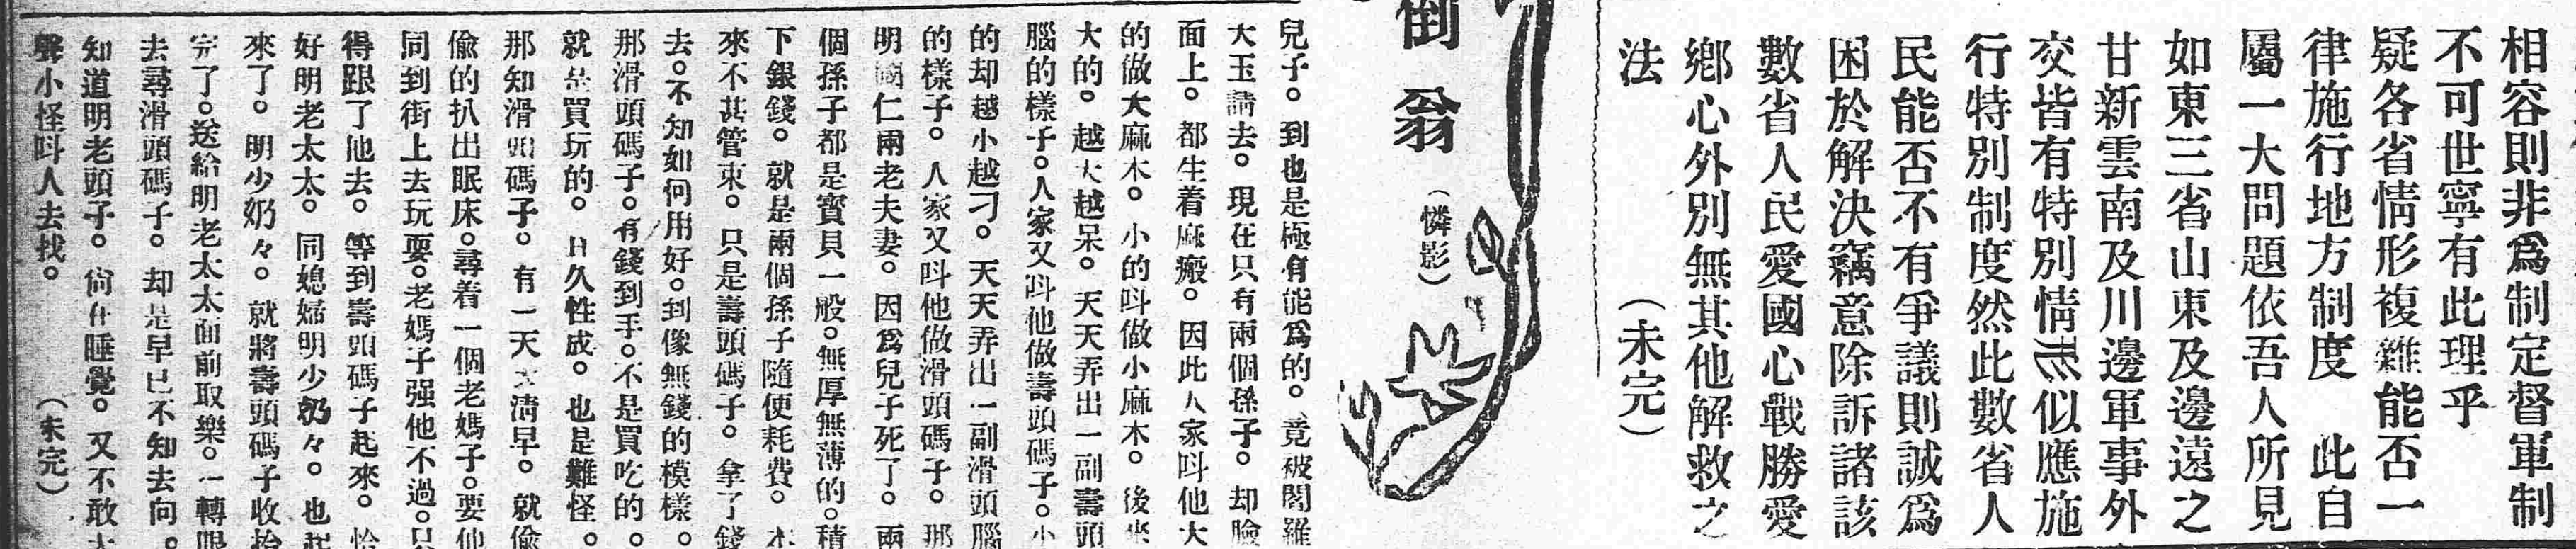 相容則非爲制定督軍制
不可世寧有此理乎
疑各省情形複雜能否一
律施行地方制度　此自
屬一大問題依吾人所見
如東三省山東及邊遠之
甘新雲南及川邊軍事外
交皆有特別情 似應施
行特別制度然此數省人
民能否不有爭議則誠爲
困於解決竊意除訴諸該
數省人民愛國心戰勝愛
鄉心外別無其他解救之
法　　　　（未完）
倒翁（憐影）
兒子。到也是極有能爲的。竟被閻羅
大玉請去。現在只有兩個孫子。却臉
面上。都生着麻瘢。因此人家呌他大
的做大麻木。小的呌做小麻木。後來
大的。越大越呆。天天弄出一副壽頭
腦的樣子。人家又呌他做壽頭碼子。小
的却越小越刁。天天弄出一副滑頭腦
的樣子。人家又呌他做滑頭碼子。那
明國仁兩老夫妻。因爲兒子死了。兩
個孫子都是寳貝一般。無厚無薄的。積
下銀錢。就是兩個孫子隨便耗費。本
來不甚管束。只是壽頭碼子。拿了錢
去。不知如何用好。到像無錢的模樣。
那滑頭碼子。有錢到手。不是買吃的。
就是買玩的。日久性成。也是難怪。
那知滑頭碼子。有一天大淸早。就偸
偸的扒出眠床。尋着一個老媽子。要他
同到街上去玩耍。老媽子强他不過。只
得跟了他去。等到壽頭碼子起來。恰
好明老太太。同媳婦明少奶々。也起
來了。明少奶々。就將壽頭碼子收拾
完了。送給明老太太面前取樂。一轉眼
去尋滑頭碼子。却是早已不知去向。
知道明老頭子。尙在睡覺。又不敢大
聲小怪呌人去找。　　　（未完）